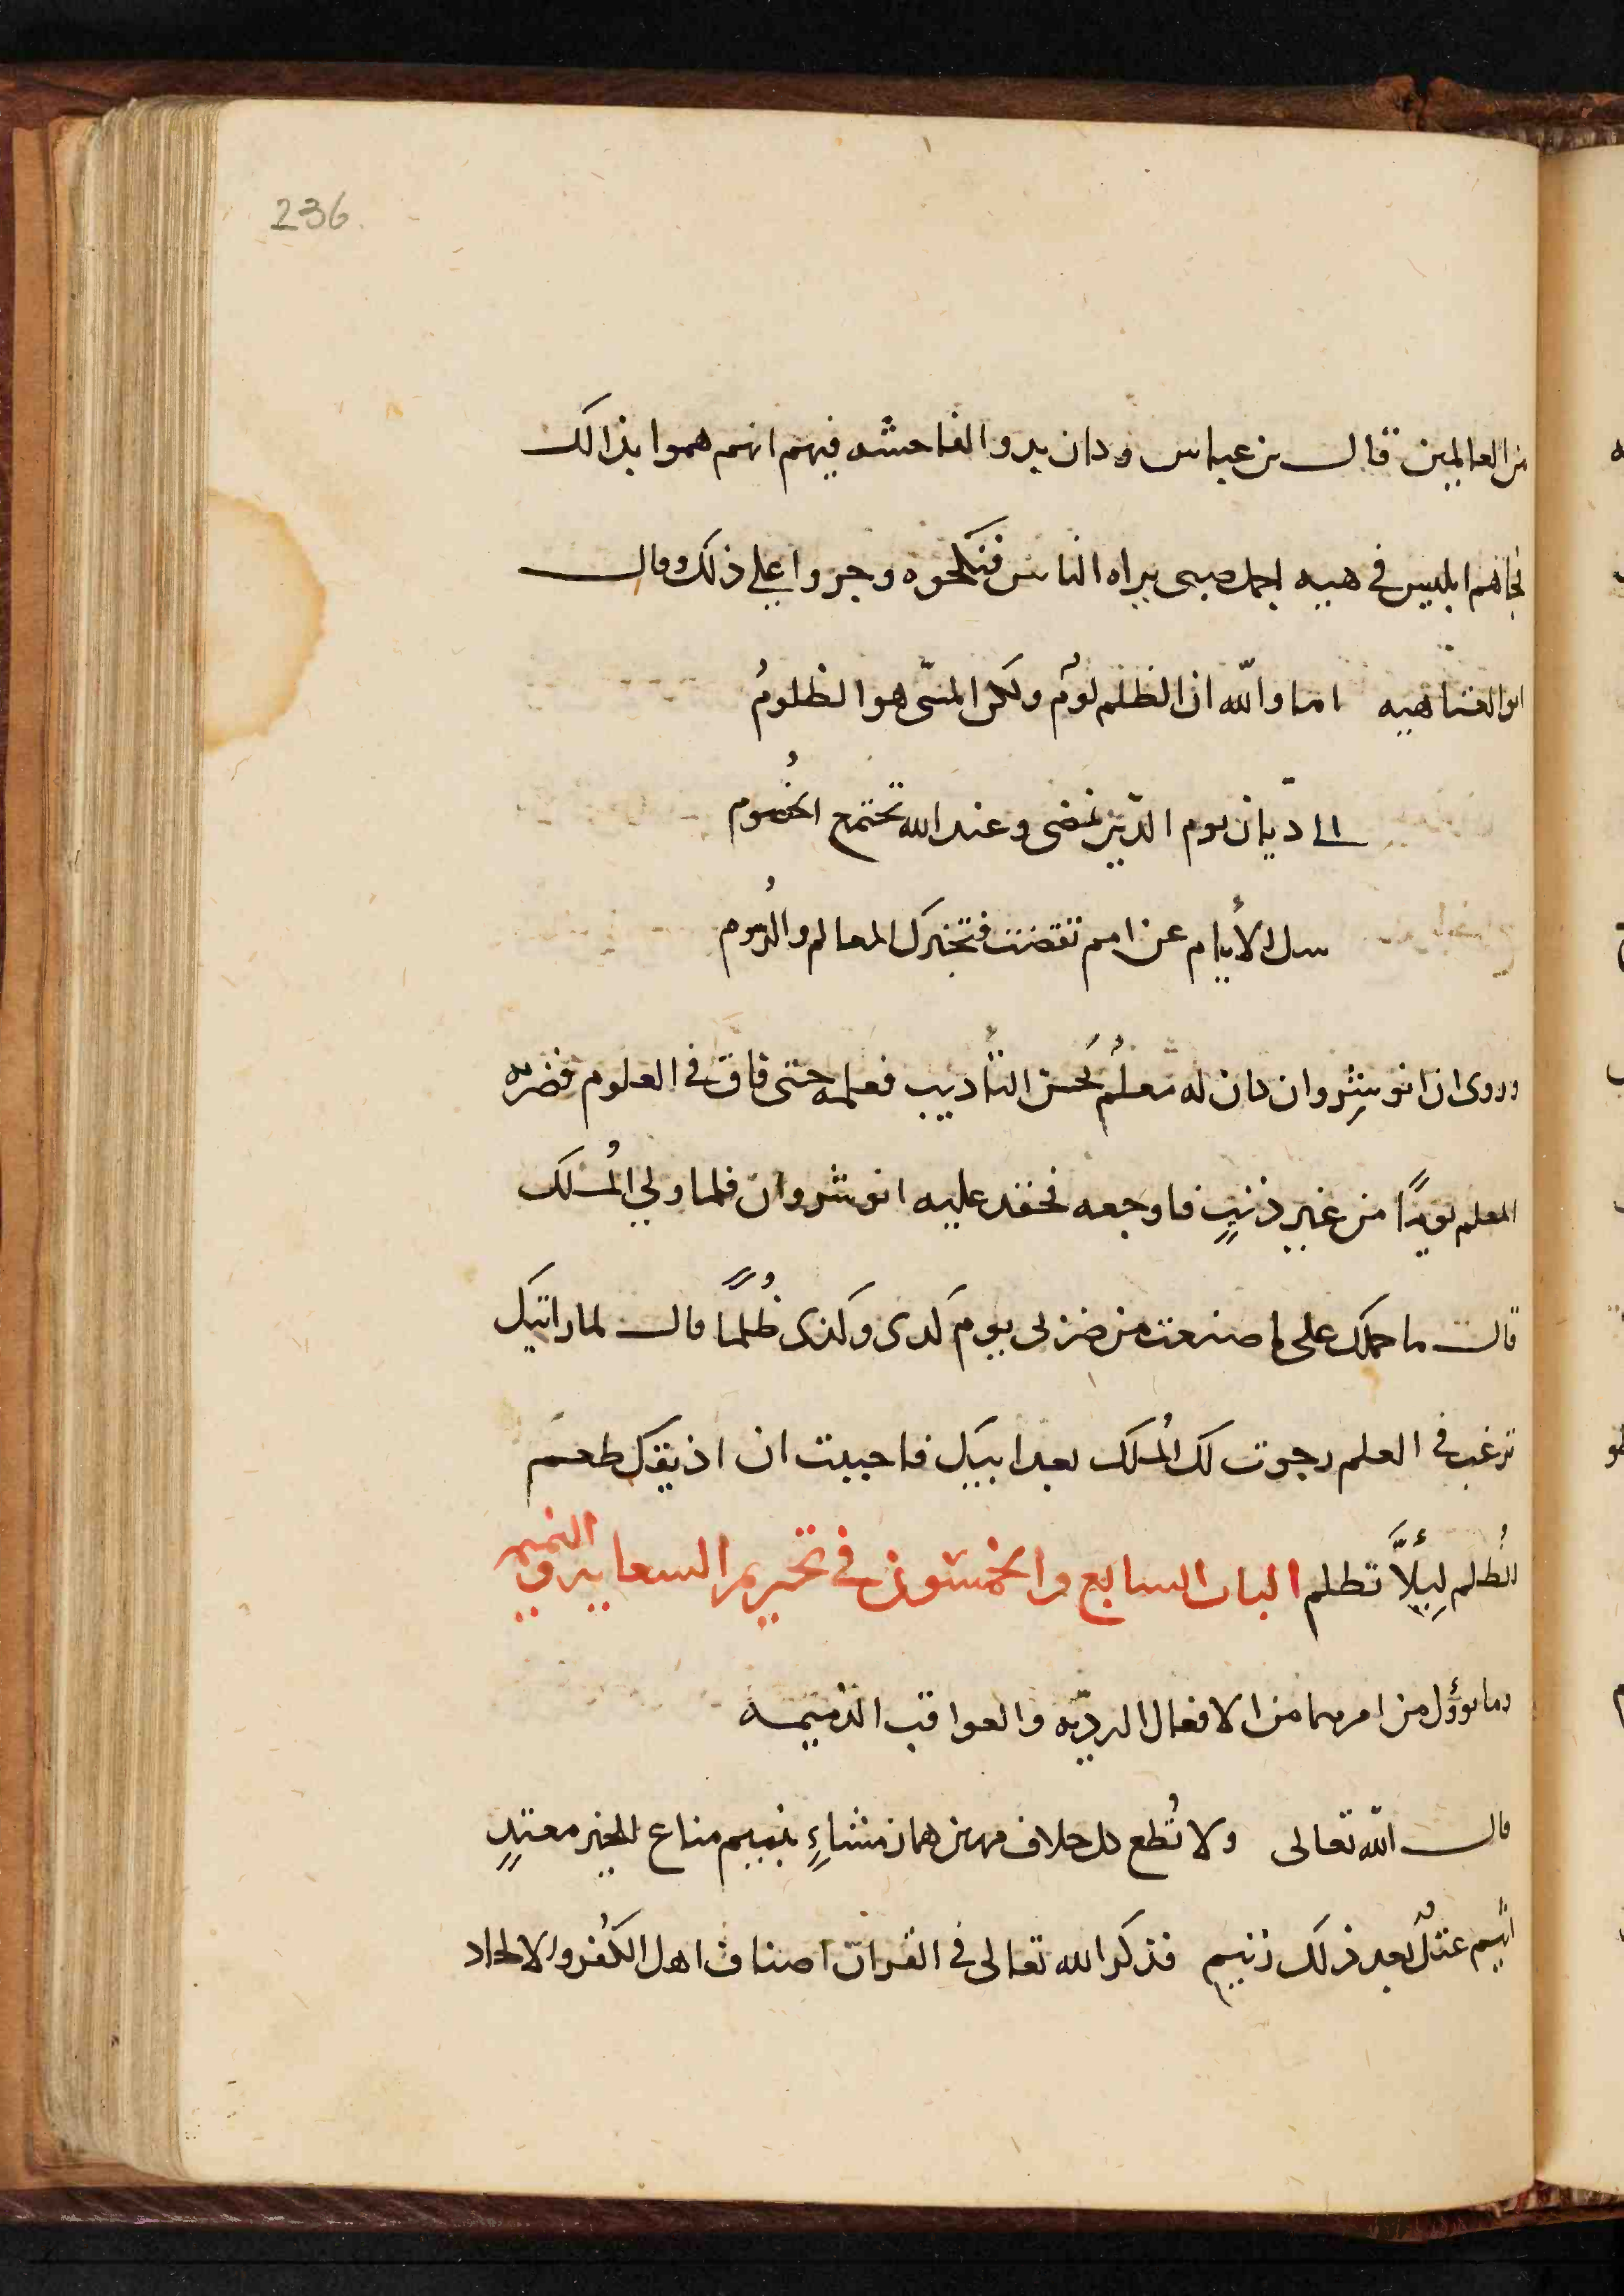 236
من العالمين قال بن عباس وكان بدو الفاحشه فيهم انهم هموا بذالك
فجاهم ابليس في هييه اجمل صبى يراه الناس فنكحوه وجروا علي ذلك وقال
ابو العتاهيه اما والله ان الظلم لومٌ ولكن المسّى هو الظلومُ
الى ديان يوم الدّين نمضى وعند الله تجتمع الخُصوم
سل الأيام عن امم تقضت فتخبرك المعالم والرُسوم
وروى ان انوشِروان كان له معلمٌ يُحسن التأديب فعلمه حتى فاق في العلوم فضربه
المعلم يومًا من غير ذنبٍ فاوجعه فحقد عليه انوشروان فلما ولي المُلك
قال ما حملك على ما صنعت من ضربى يوم كدى وكدى ظُلمًا قال لما رايتك
ترغب في العلم رجوت لك المُلك بعد ابيك فاحببت ان اذيقك طعم
الظُلم ليِلأَّ تظلم الباب السابع والخمسون في تحريم السعايه والنميمه
وما يوؤل من امرهما من الافعال الرديّه والعواقب الذميمه
قال الله تعالى ولا تُطع كل حلاف مهين هماز مشاءٍ بنميم مناع للخير معتدٍ
اثيم عتلٍ بعد ذلك زنيم فذكر الله تعالى في القران اصناف اهل الكُفر والالحاد